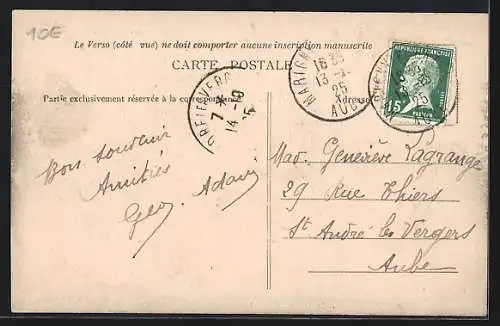 10€
Le Verso (côté vue) ne doit comporter aucune inscription manuscrite
CARTE POSTALE
Partie exclusivement réservée à la correspondance
Adresse
REPUBLIQUE FRANÇAISE
15
POSTES
MARIGN
16
13
25
AUBE
7
14
25
Bons souvenir
Amitiés
Geo. Adam
Mad. Geneviève Lagrange
29 Rue Thiers
St André les Vergers
Aube